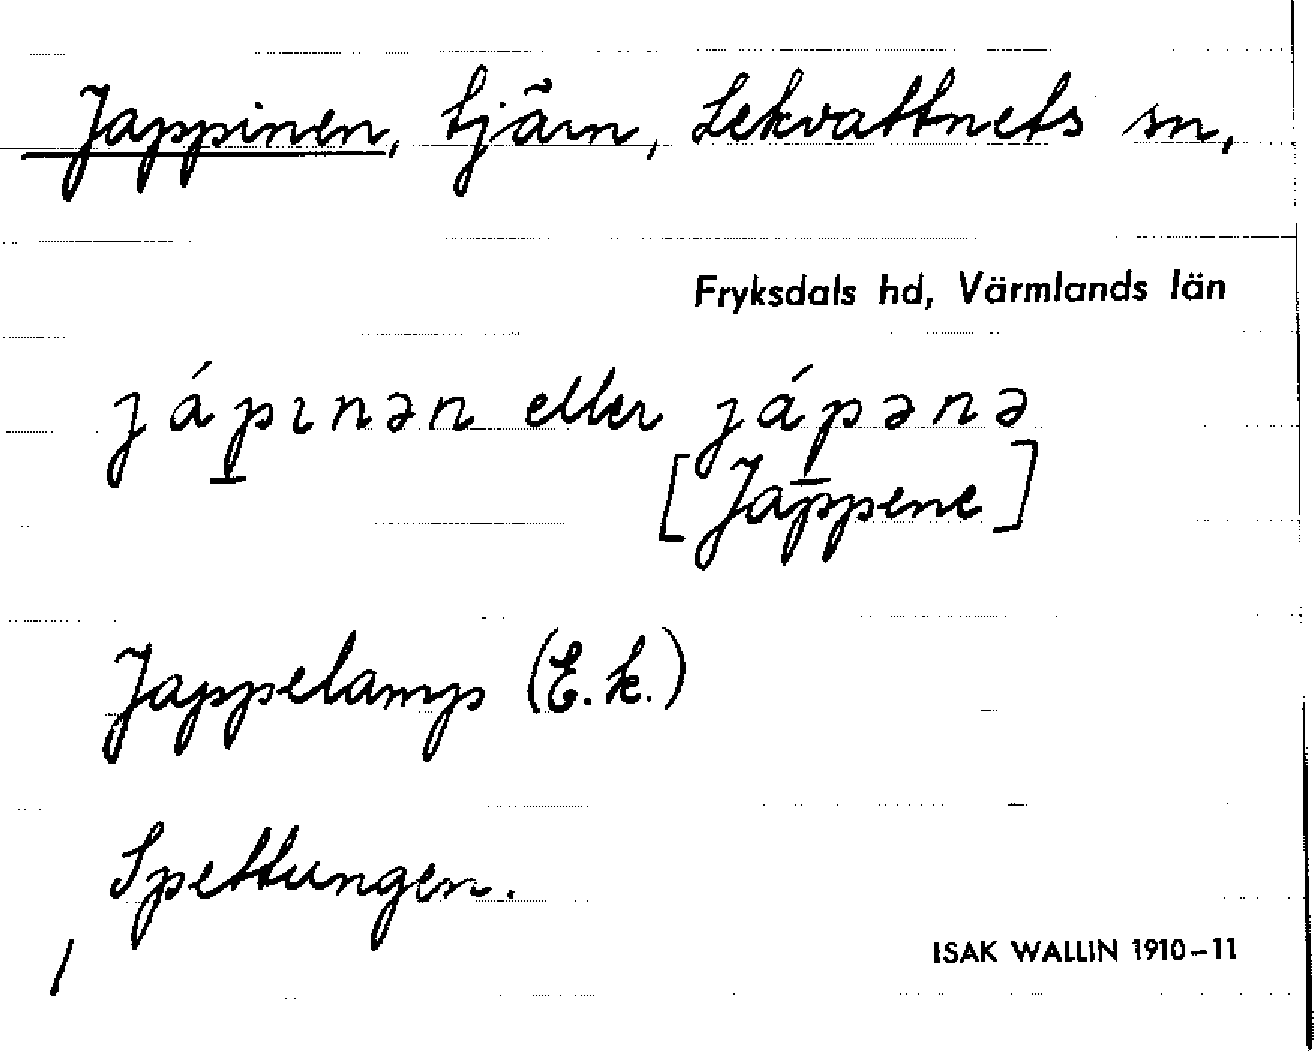 Jappinen, tjärn, Lekvattnets sn,
Fryksdals hd, Värmlands län
ȷáp̲ınən eller ȷáp̲ənə
[Jappene]
Jappelamp (E.k.)
Spettungen.
/
ISAK WALLIN 1910-11